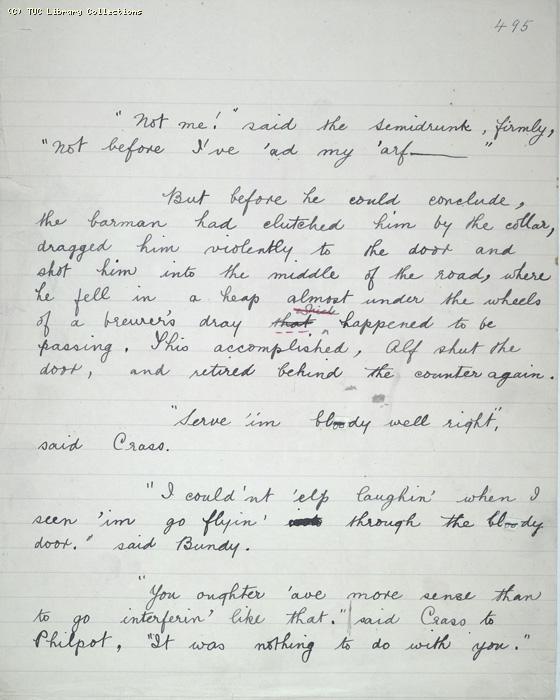 (C) TUC Library Collections
495
"Not me!" said the Semidrunk, firmly,
"Not before I've 'ad my 'arf——"
But before he could conclude,
the barman had clutched him by the collar,
dragged him violently to the door and
shot him into the middle of the road, where
he fell in a heap almost under the wheels
of a brewer's dray that happened to be
passing. This accomplished, Alf shut the
door, and retired behind the counter again.
"Serve 'im bloody well right",
said Crass.
"I could'nt 'elp laughin' when I
seen 'im go flyin' through the bloody
door." said Bundy.
"You oughter 'ave more sense than
to go interferin' like that." said Crass to
Philpot, "It was nothing to do with you."